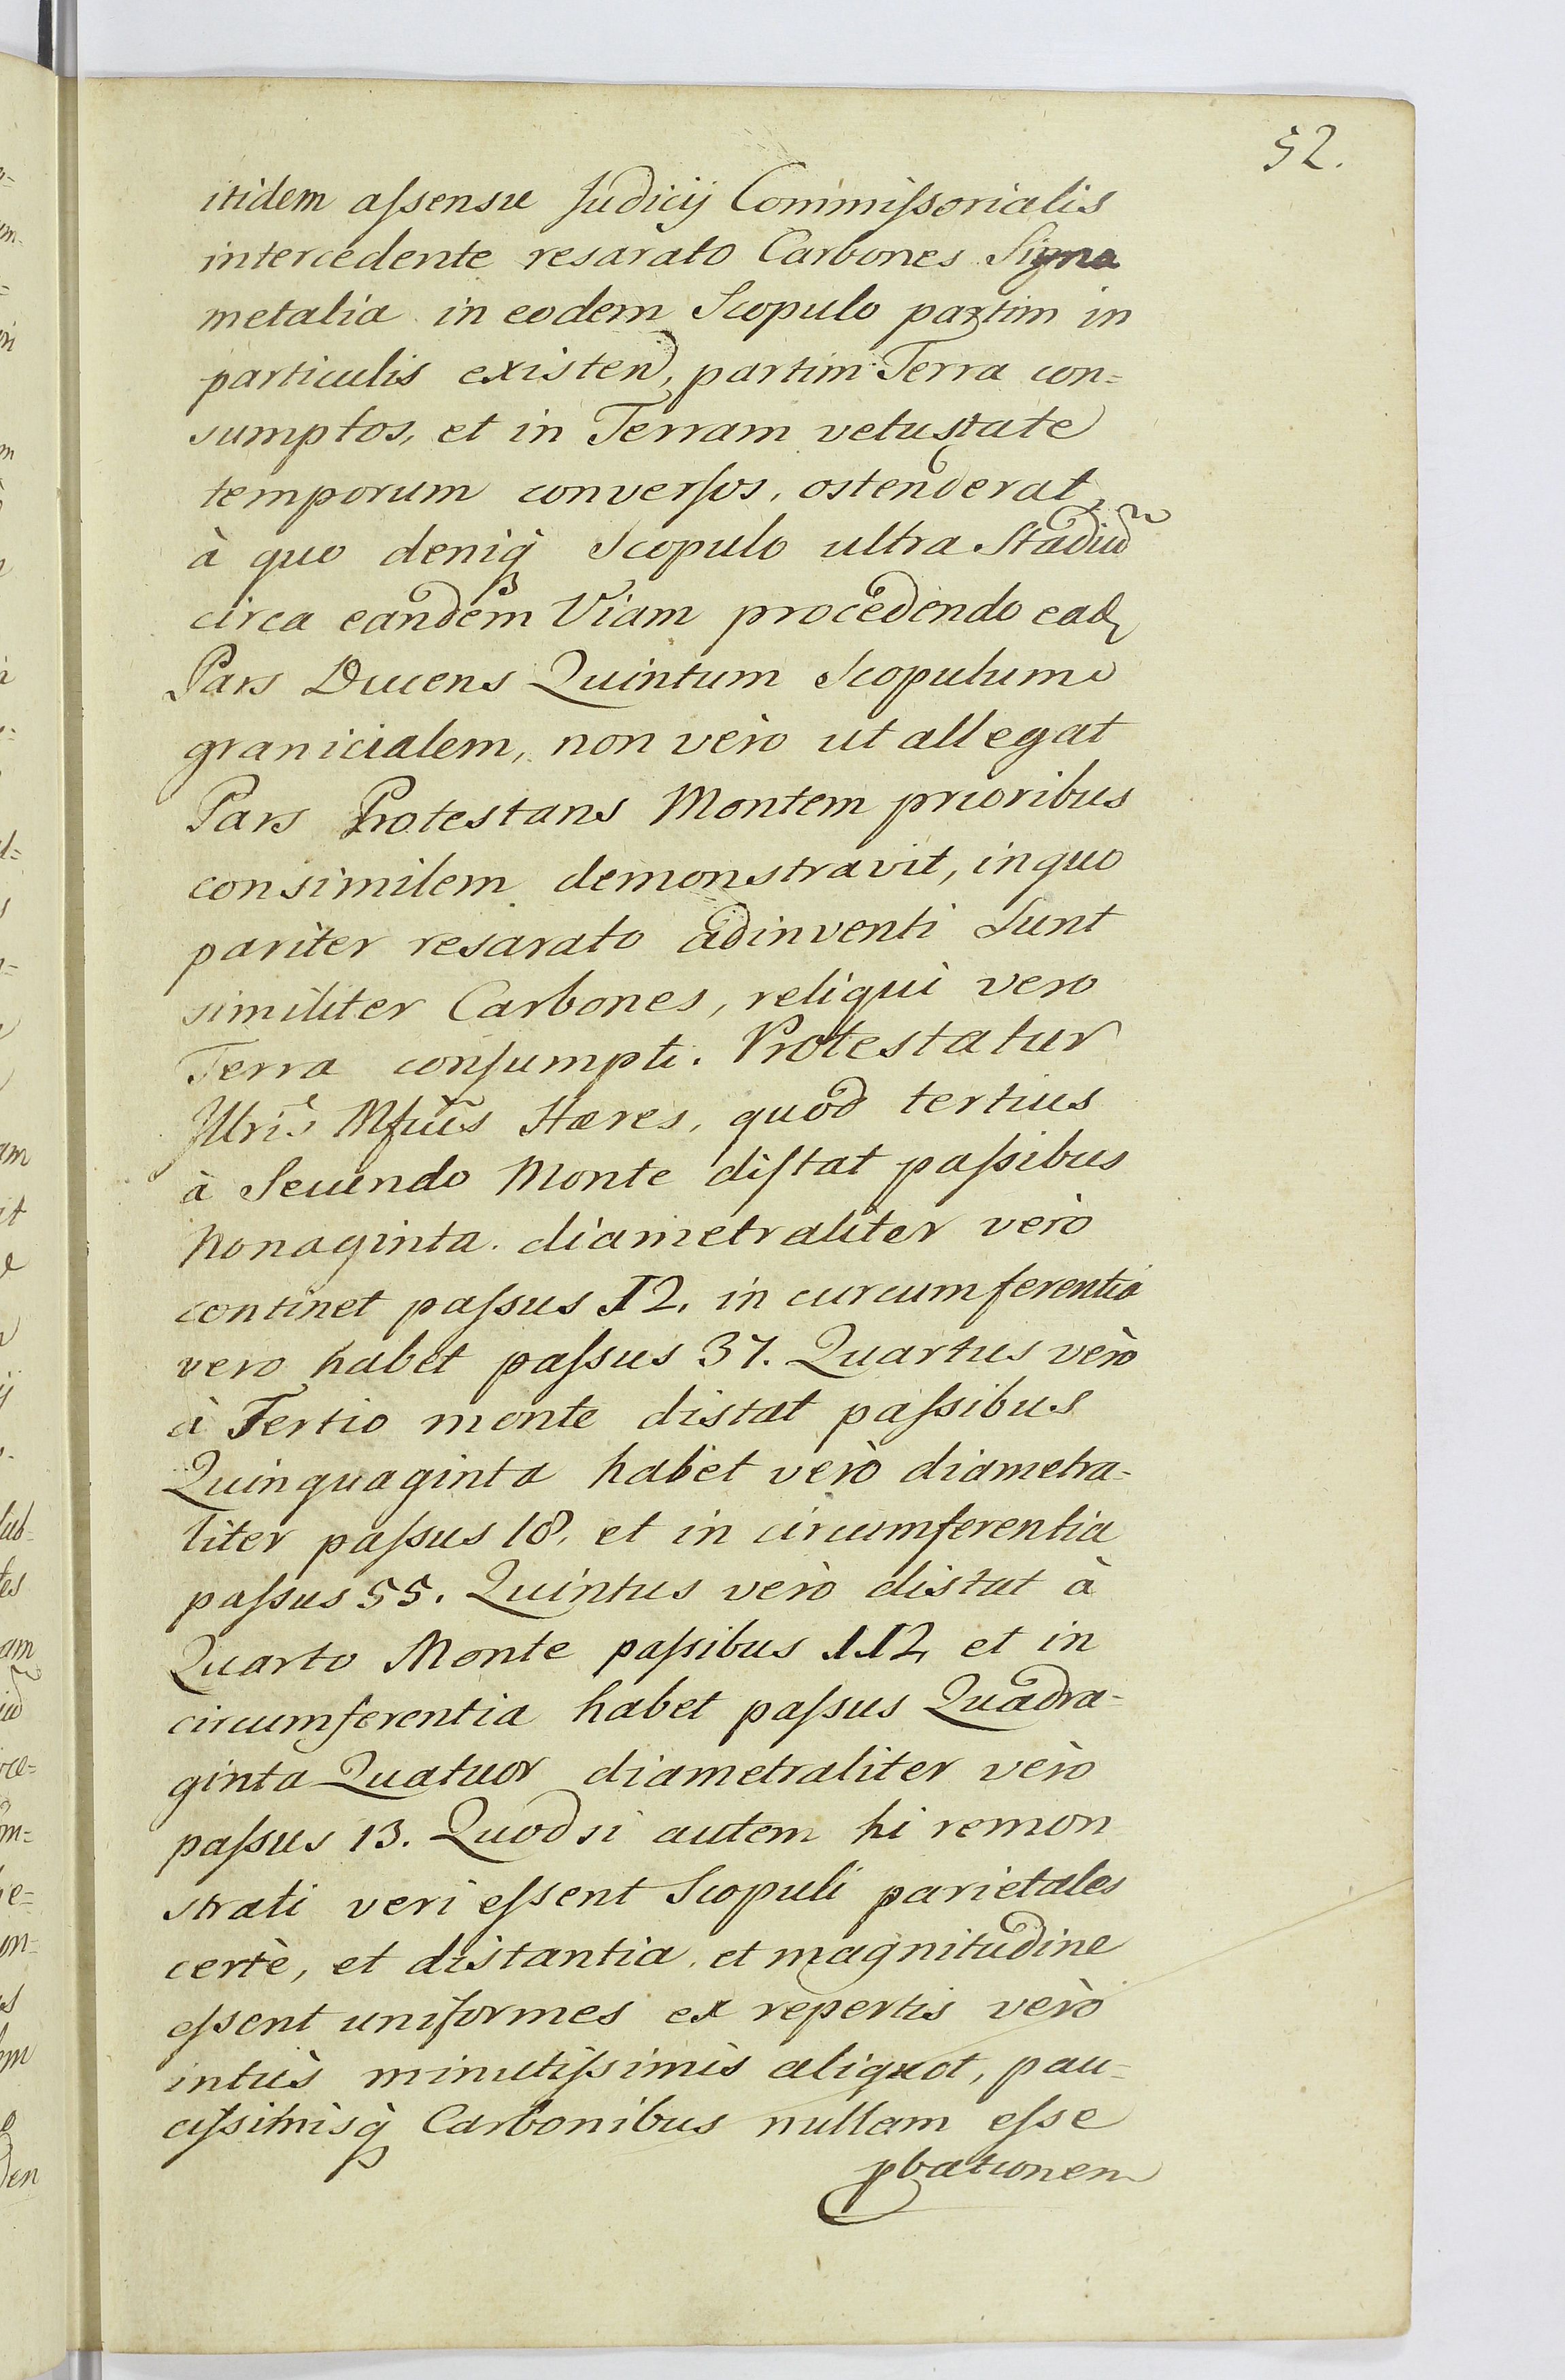 52.
itidem aſsensu Judicij Commiſsorialis
intercedente resarato Carbones Signa
metalia in eodem Scopulo partim in
particulis existen, partim Terra con=
sumptos, et in Terram vetustate
temporum converſos, ostenderat,
à quo deniq́ Scopulo ultra Stadiu͠
circa eandem Viam procedendo ead
Pars Ducens Quintum Scopulum
granicialem, non vèro ut allegat
Pars Protestans Montem prioribus
consimilem demonstravit, in quo
pariter resarato adinventi Sunt
similiter Carbones, reliqui vero
Terra conſumpti. Protestatur
Illris Mſcus Hæres, quod tertius
à Secundo Monte diſtat paſsibus
Nonaginta. diametraliter verò
continet paſsus 12. in curcumferentia
vero habet paſsus 37. Quartus vèro
à Tertio monte distat paſsibus
Quinquaginta habet verò diametra-
liter paſsus 18. et in circumferentia
paſsus 55. Quintus verò distat à
Quarto Monte paſsibus 112, et in
circumferentia habet paſsus Quadra-
ginta Quatuor diametraliter vèro
paſsus 13. Quodsi autem hi remon
strati veri eſsent Scopuli parietales
certè, et distantia, et magnitudine
eſsent uniformes ex repertis vèrò
intùs minutiſsimis aliquot, pau-
ciſsimisq́ Carbonibus nullam eſse
pbationem